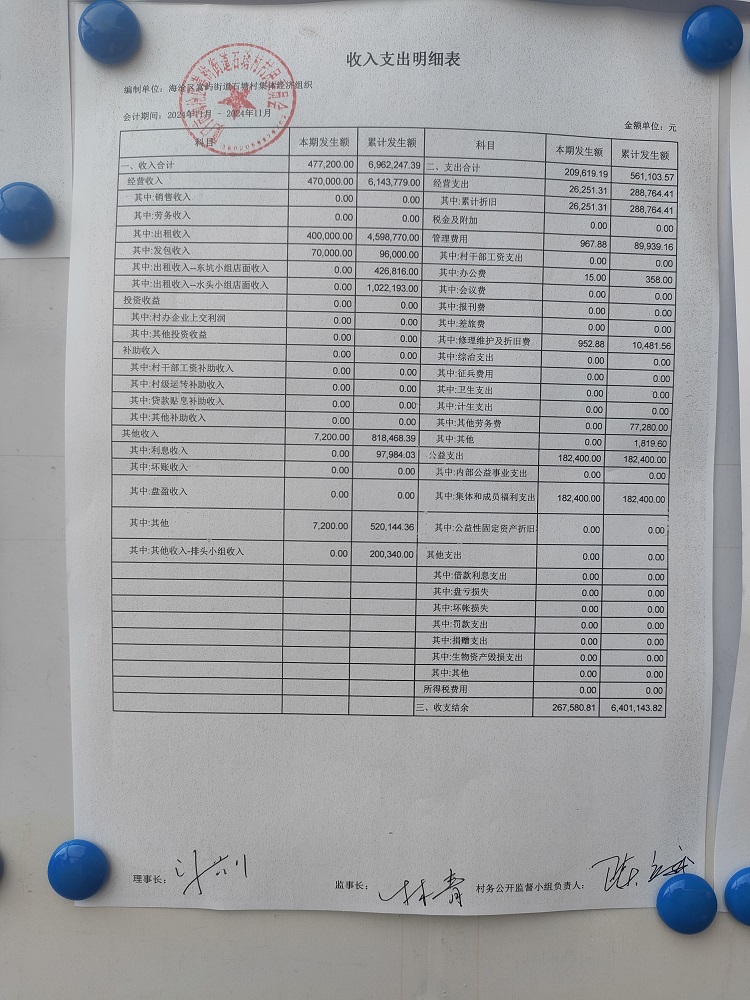 收入支出明细表
编制单位：海沧区嵩屿街道石塘村集体经济组织
会计期间：2024年11月 - 2024年11月
金额单位：元
科目 本期发生额 累计发生额 科目 本期发生额 累计发生额
一、收入合计 477,200.00 6,962,247.39 二、支出合计 209,619.19 561,103.57
经营收入 470,000.00 6,143,779.00 经营支出 26,251.31 288,764.41
其中:销售收入 0.00 0.00 其中:累计折旧 26,251.31 288,764.41
其中:劳务收入 0.00 0.00 税金及附加 0.00 0.00
其中:出租收入 400,000.00 4,598,770.00 管理费用 967.88 89,939.16
其中:发包收入 70,000.00 96,000.00 其中:村干部工资支出 0.00 0.00
其中:出租收入--东坑小组店面收入 0.00 426,816.00 其中:办公费 15.00 358.00
其中:出租收入--水头小组店面收入 0.00 1,022,193.00 其中:会议费 0.00 0.00
投资收益 0.00 0.00 其中:报刊费 0.00 0.00
其中:村办企业上交利润 0.00 0.00 其中:差旅费 0.00 0.00
其中:其他投资收益 0.00 0.00 其中:修理维护及折旧费 952.88 10,481.56
补助收入 0.00 0.00 其中:综治支出 0.00 0.00
其中:村干部工资补助收入 0.00 0.00 其中:征兵费用 0.00 0.00
其中:村级运转补助收入 0.00 0.00 其中:卫生支出 0.00 0.00
其中:贷款贴息补助收入 0.00 0.00 其中:计生支出 0.00 0.00
其中:其他补助收入 0.00 0.00 其中:其他劳务费 0.00 77,280.00
其他收入 7,200.00 818,468.39 其中:其他 0.00 1,819.60
其中:利息收入 0.00 97,984.03 公益支出 182,400.00 182,400.00
其中:坏账收入 0.00 0.00 其中:内部公益事业支出 0.00 0.00
其中:盘盈收入 0.00 0.00 其中:集体和成员福利支出 182,400.00 182,400.00
其中:其他 7,200.00 520,144.36 其中:公益性固定资产折旧 0.00 0.00
其中:其他收入-排头小组收入 0.00 200,340.00 其他支出 0.00 0.00
其中:借款利息支出 0.00 0.00
其中:盘亏损失 0.00 0.00
其中:坏帐损失 0.00 0.00
其中:罚款支出 0.00 0.00
其中:捐赠支出 0.00 0.00
其中:生物资产毁损支出 0.00 0.00
其中:其他 0.00 0.00
所得税费用 0.00 0.00
三、收支结余 267,580.81 6,401,143.82
理事长： 监事长：林青 村务公开监督小组负责人：